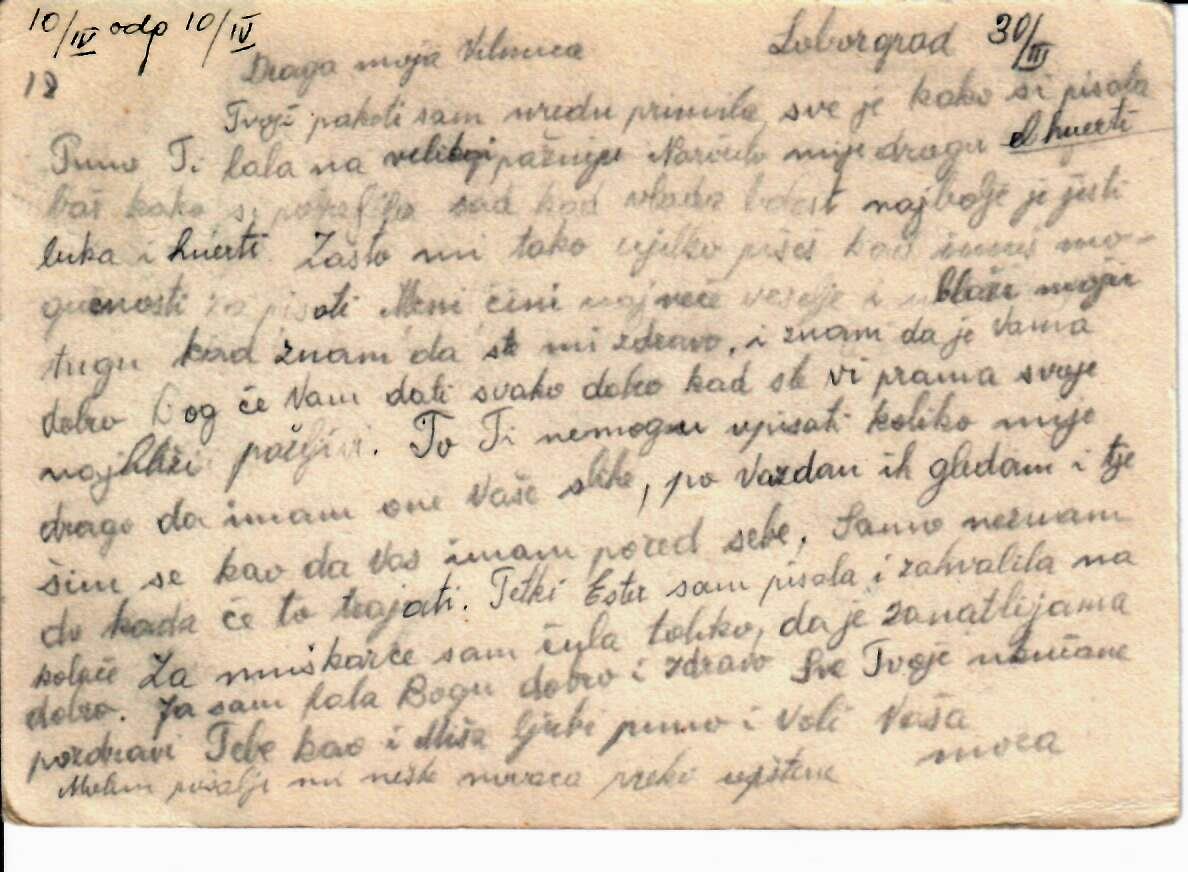 10/IV odp 10/IV
Loborgrad 30/III
18
Draga moja Vilmica
Tvoje pakete sam uredu primila, sve je kako si pisala
Puno Ti hala na velikoj pažnji Naročito mi je drago el huerti
baš kako si sad kad vlada najbolje je jesti
luka i huerti Zašto mi tako rijetko pišeš kad imaš mo-
gućnosti za pisati Meni čini najveće veselje i ublaži moju
tugu kad znam da ste mi zdravo, i znam da je Vama
dobro Bog će Vam dati svako dobro kad ste vi prama svoje
najbliži pažljivi. To Ti nemogu opisati koliko mije
drago da imam one Vaše slike, po vazdan ih gledam i tje
šim se kao da Vas imam pored sebe, Samo neznam
do kada će to trajati. Tetki Ester sam pisala i zahvalila na
kolače Za muškarce sam čula toliko, da je zanatlijama
dobro. Ja sam hala Bogu dobro i zdravo Sve Tvoje
pozdravi Tebe kao i Miša ljubi puno i voli Vaša
Molim pošalji mi neške novaca preko opštine